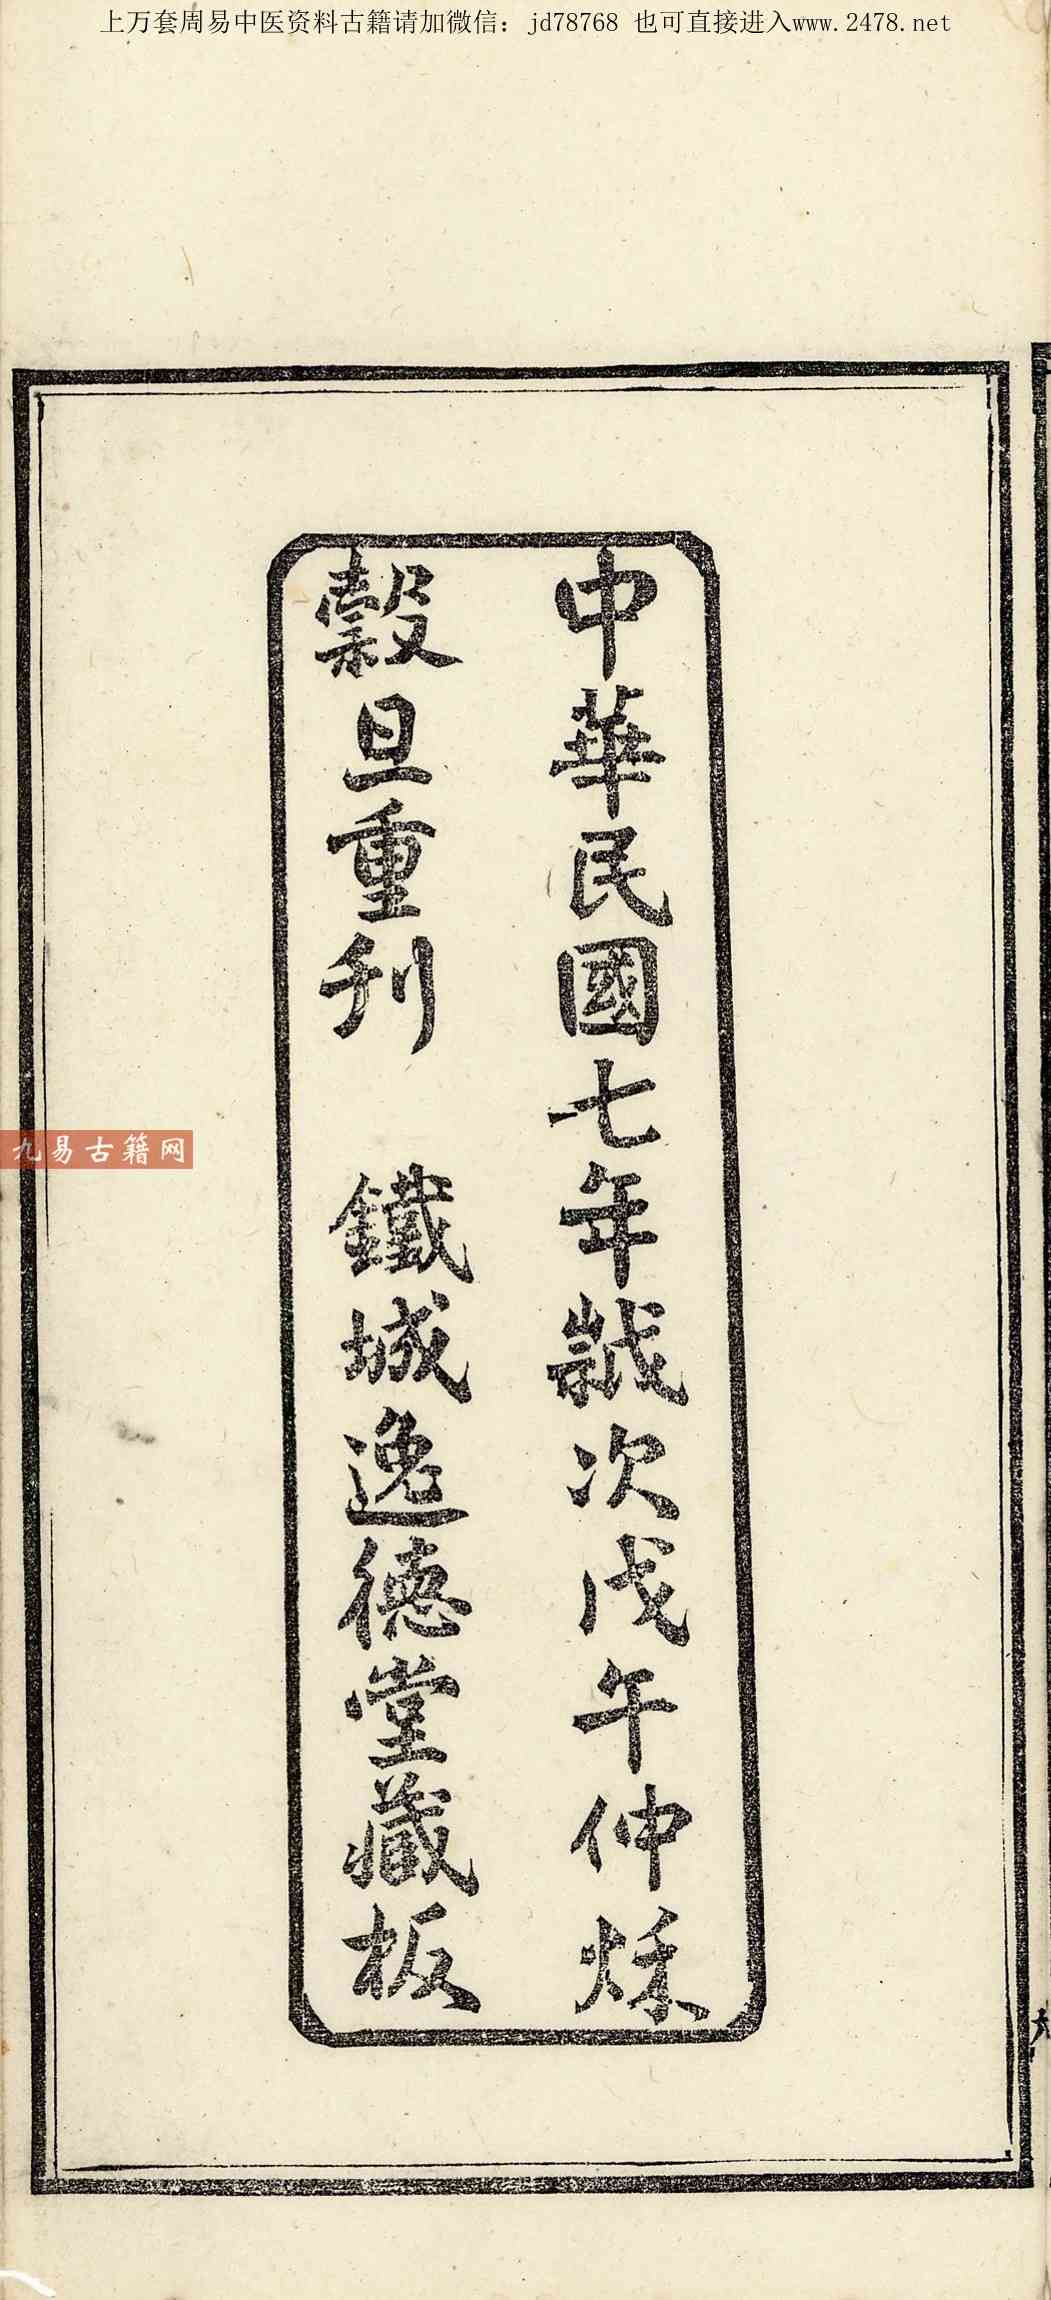 上万套周易中医资料古籍请加微信：jd78768 也可直接进入www.2478.net
中華民國七年歲次戊午仲秌
穀旦重刊 鐵城逸德堂藏板
九易古籍网